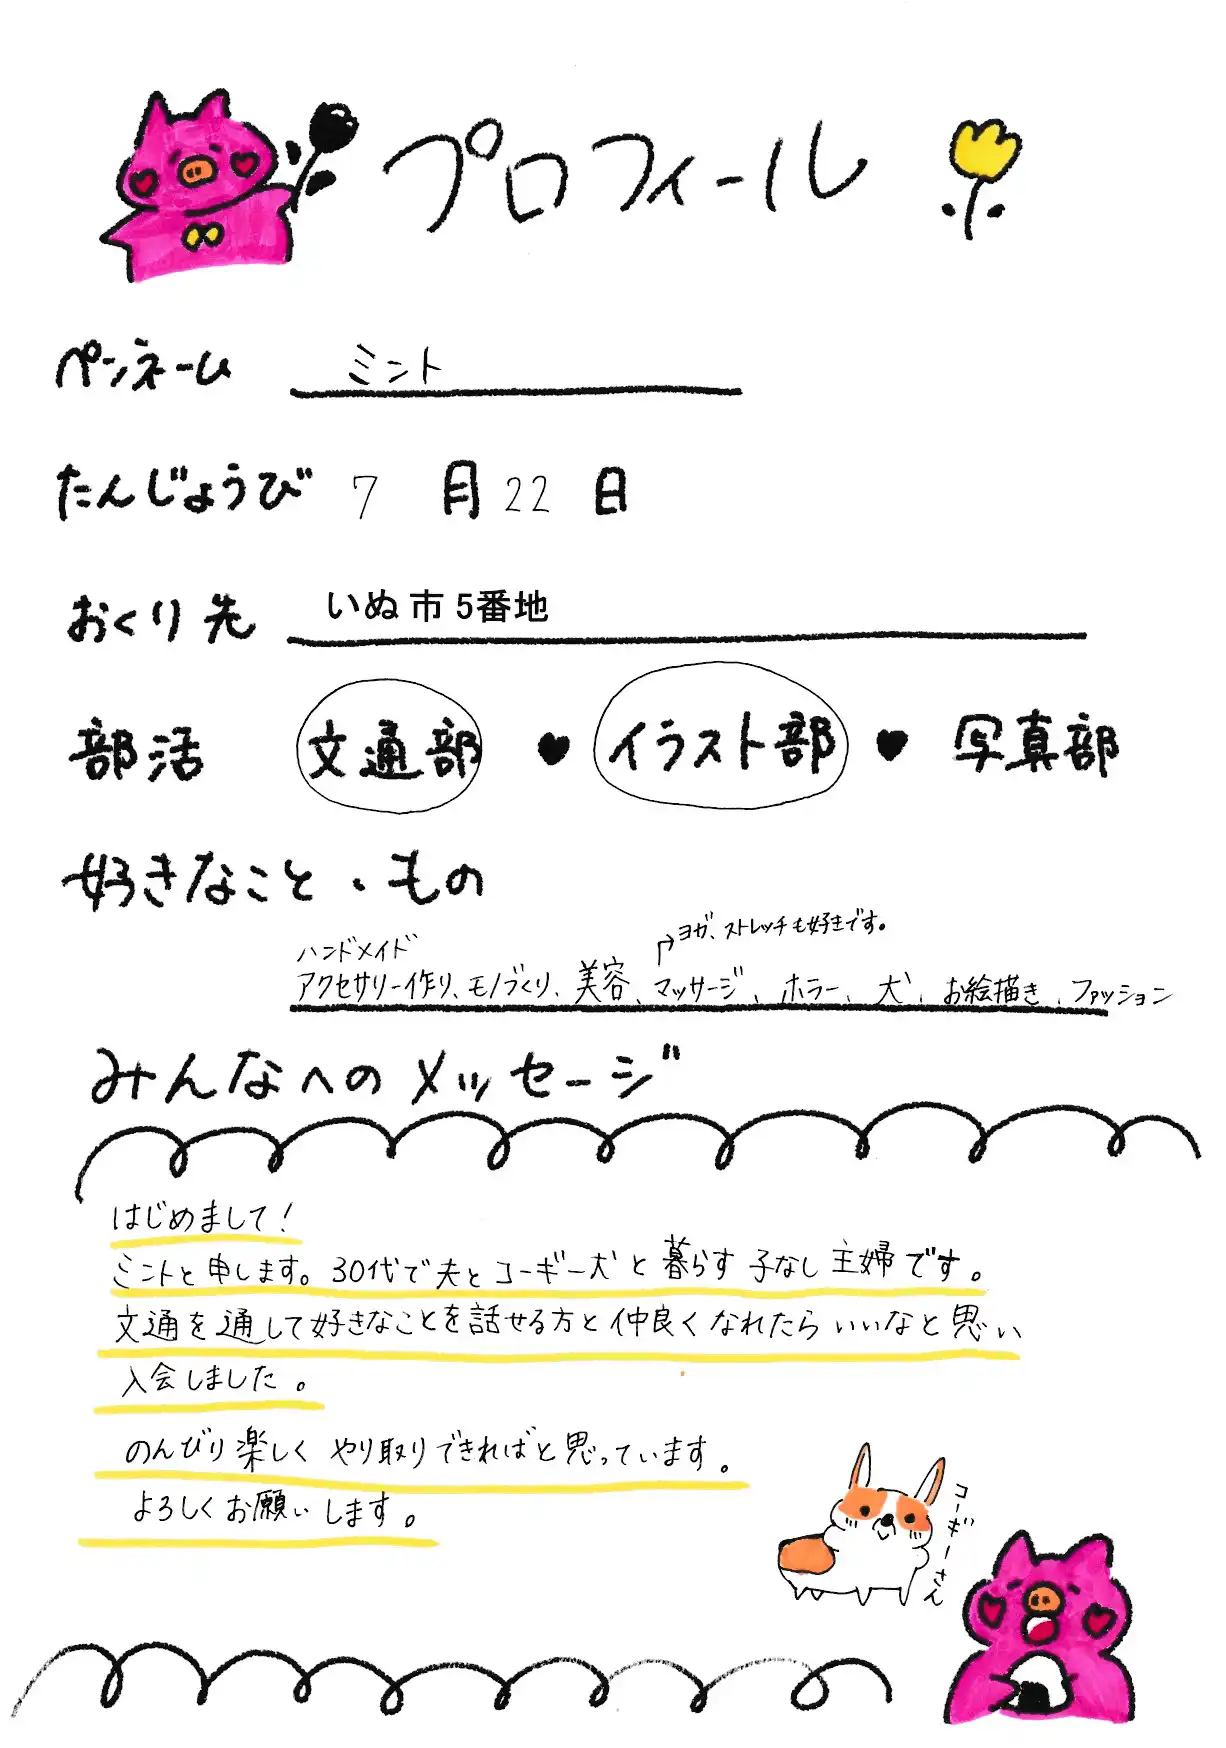 プロフィール
ペンネーム ミント
たんじょうび 7 月 22 日
おくり先 いぬ市 5番地
部活 文通部 ♥ イラスト部 ♥ 写真部
好きなこと・もの
→ヨガ、ストレッチも好きです。
ハンドメイド
アクセサリー作り、モノづくり、美容、マッサージ、ホラー、犬、お絵描き、ファッション
みんなへのメッセージ
はじめまして!
ミントと申します。30代で夫とコーギー犬と暮らす子なし主婦です。
文通を通して好きなことを話せる方と仲良くなれたらいいなと思い
入会しました。
のんびり楽しくやり取りできればと思っています。
よろしくお願いします。
コーギーさん